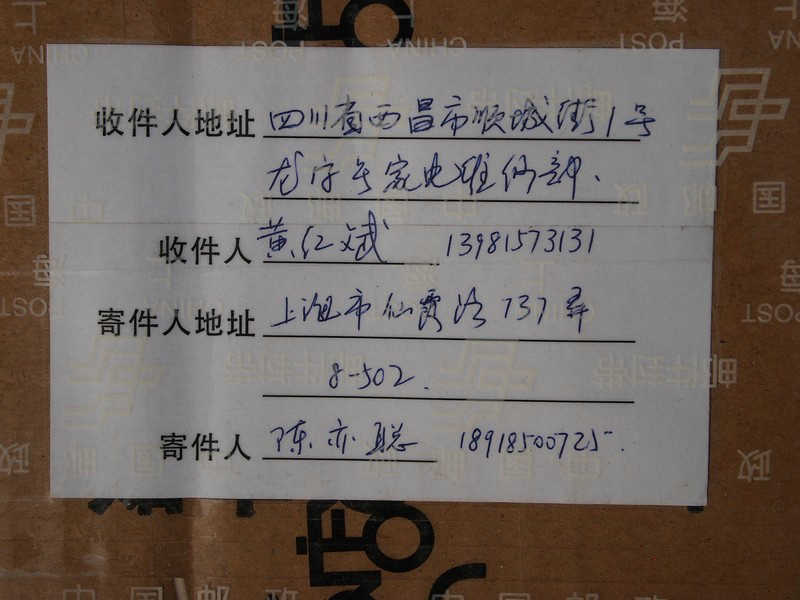 收件人地址 四川省西昌市顺城街1号
家电维修部.
收件人 黄红斌 13981573131
寄件人地址 上海市仙霞路737弄
8-502.
寄件人 陈亦聪 18918500725.